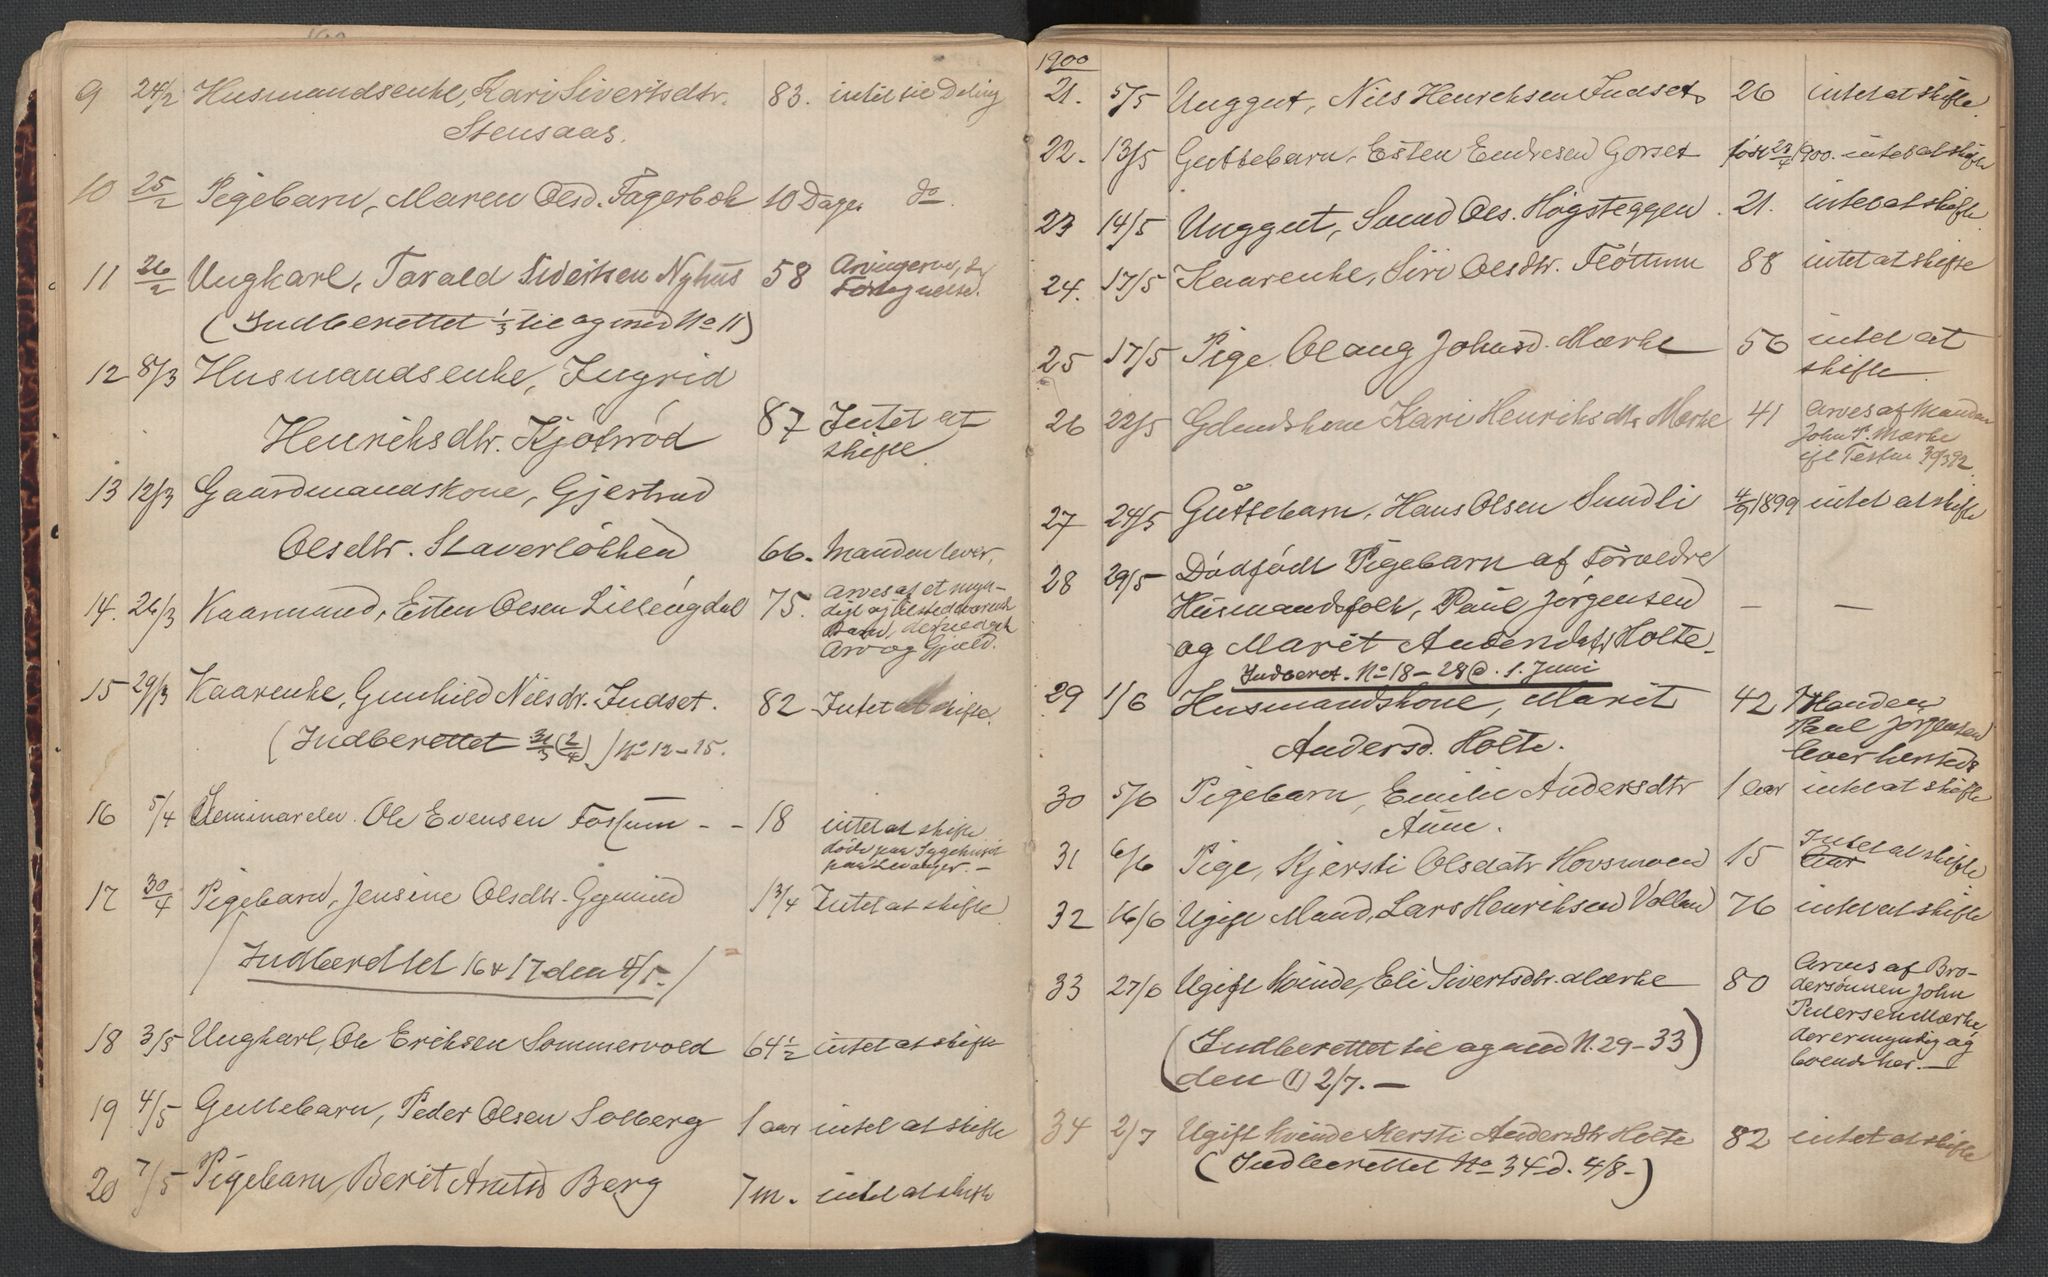 9 24/2 Husmandsenke, Kari Sivertsdtr. 83. intet til Deling
Stensaas.
10 25/2 Pigebarn, Maren Olsd. Fagerbek 10 Dage. do.
11 26/2 Ungkarl, Tarald Sivertsen Nyhus 58
(Indberettet 1/3 tie og med No 11)
12 8/3 Husmandsenke, Ingrid
Henriksdtr. Kjötröd 87 Intet at
skifte
13 12/3 Gaardmandskone, Gjertrud
Olsdtr. Staverlökken 66. Manden lever,
14. 26/3 Kaarmand, Esten Olsen Lilleögdal 75. Arves af et myn-
digt og
Barn,
Arv og Gjæld.
15 29/3 Kaarenke, Gunhild Nilsdtr. Indset. 82 Intet at skifte.
(Indberettet 31/3 (2/4)) No 12-15.
16 5/4 Seminarelev. Ole Evensen Fossum - - 18 intet at skifte
döde paa Sygehuset
paa Levanger. -
17 30/4 Pigebarn, Jensine Olsdtr. Gynnild 1 3/4 Intet at skifte
/ Indberettet 16 & 17 den 4/5. /
18 3/5 Ungkarl, Ole Eriksen Sommervold 64 1/2 intet at skifte
19 4/5 Guttebarn, Peder Olsen Solberg 1 aar intet at skifte
20 7/5 Pigebarn, Berit Arntsd Berg 7 m. intet at skifte
1900
21. 5/5 Unggut, Nils Henriksen Indset 26 intet at skifte.
22. 13/5 Guttebarn, Esten Endresen Gorset født 23/4 900. intet at skifte
23 14/5 Unggut, Svend Ols. Högsteggen. 21. intet at skifte
24. 17/5 Kaarenke, Siri Olsdtr. Flöttum 88 intet at skifte
25 17/5 Pige. Olaug Johnsd. Mærke 56 intet at
skifte.
26 22/5 Gdmdskone Kari Henriksdtr Mærke 41 Arves af Manden
John P. Mærke
efl Testm 30/3 92.
27 24/5 Guttebarn, Hans Olsen Sundli 4/9 1899 intet at skifte
28 29/5 Dödfödt Pigebarn af Foræeldre
Husmandsfolk, Paul Jörgensen — —
og Marit Andersdtr Holte.
Indberet. No 18 - 28 d. 1. Juni
29 1/6 Husmandskone, Marit 42 Manden
Andersd. Holte. Paul Jörgensen
lever hersteds
30 5/6 Pigebarn, Emilie Andersdtr 1 aar intet at skifte
Aune.
31 6/6 Pige, Kjersti Olsdatr Hovsmoen 15 Intet at skifte
aar
32 16/6 Ugift Mand, Lars Henriksen Vollan 76 intet at skifte
33 27/6 Ugift Kvinde, Eli Sivertsdtr. Mærke 80 Arves af Bro-
dersönnen John
Pedersen Mærke,
der er myndig og
boende her. —
(Indberettet tie og med N. 29-33)
den (1) 2/7. —
34 2/7 Ugift Kvinde Kersti Andersdtr Holte 82 intet at skifte
(Indberettet No 34 d. 4/8 -)